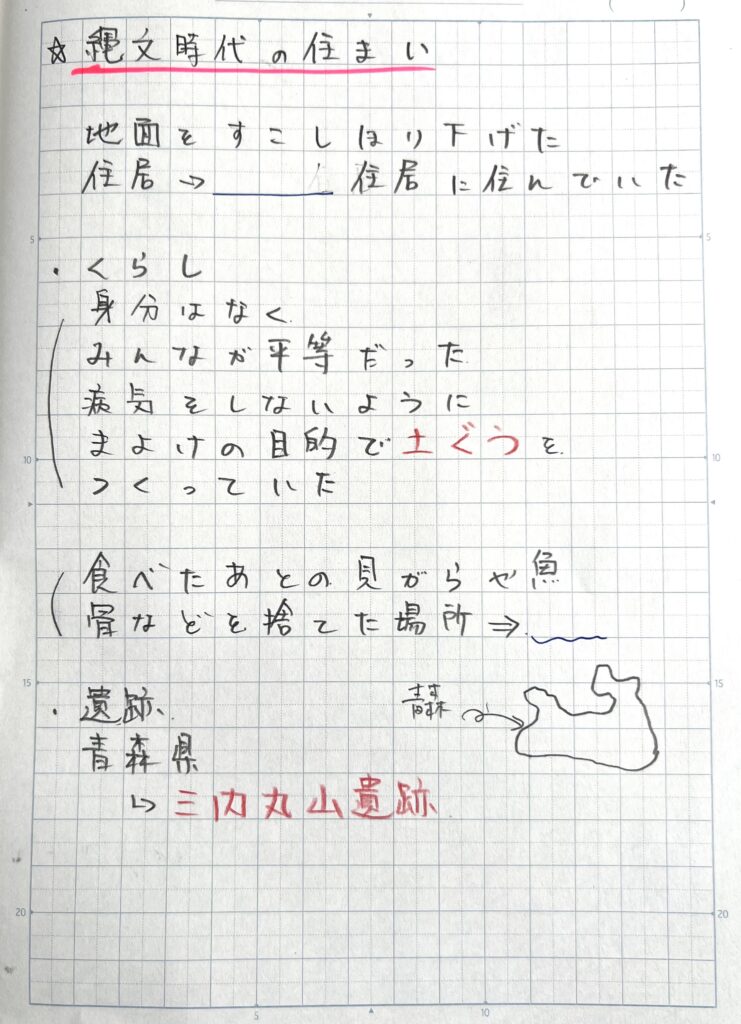 ☆ 縄文時代の住まい
地面をすこしほり下げた
住居→______住居に住んでいた
・くらし
身分はなく
みんなが平等だった
病気をしないように
まよけの目的で土ぐうを
つくっていた
食べたあとの貝がらや魚
骨などを捨てた場所⇒
・遺跡
青森
青森県
↳三内丸山遺跡
5
5
10
10
15
15
20
20
5
10